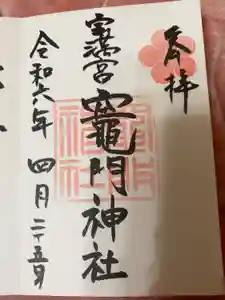 奉拝
宝満宮
竈門神社
令和六年
四月二十五日